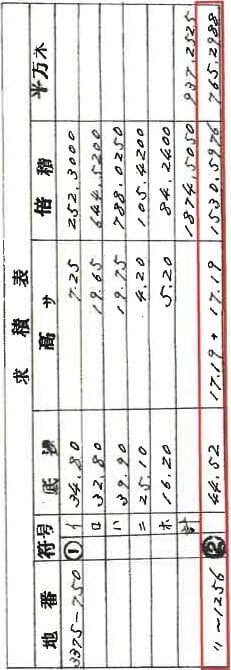 求積表
地番 符号 底邊 高サ 倍積 平方木
3375-750 ① イ 34.80 7.25 252.3000
ロ 32.80 19.65 644.5200
ハ 39.90 19.75 788.0250
ニ 25.10 4.20 105.4200
ホ 16.20 5.20 84.2400
計 1874.5050 937.2525
〃~1256 ② 44.52 17.19 + 17.19 1530.5976 765.2988